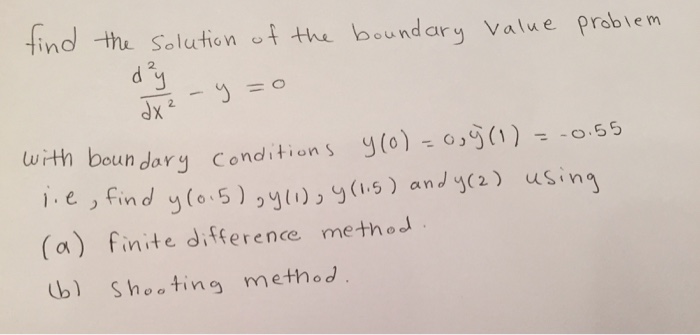 find the solution of the boundary value problem
d²y/dx² - y = 0
with boundary conditions y(0) = 0, ŷ(1) = -0.55
i.e, find y(0.5), y(1), y(1.5) and y(2) using
(a) finite difference method.
(b) shooting method.